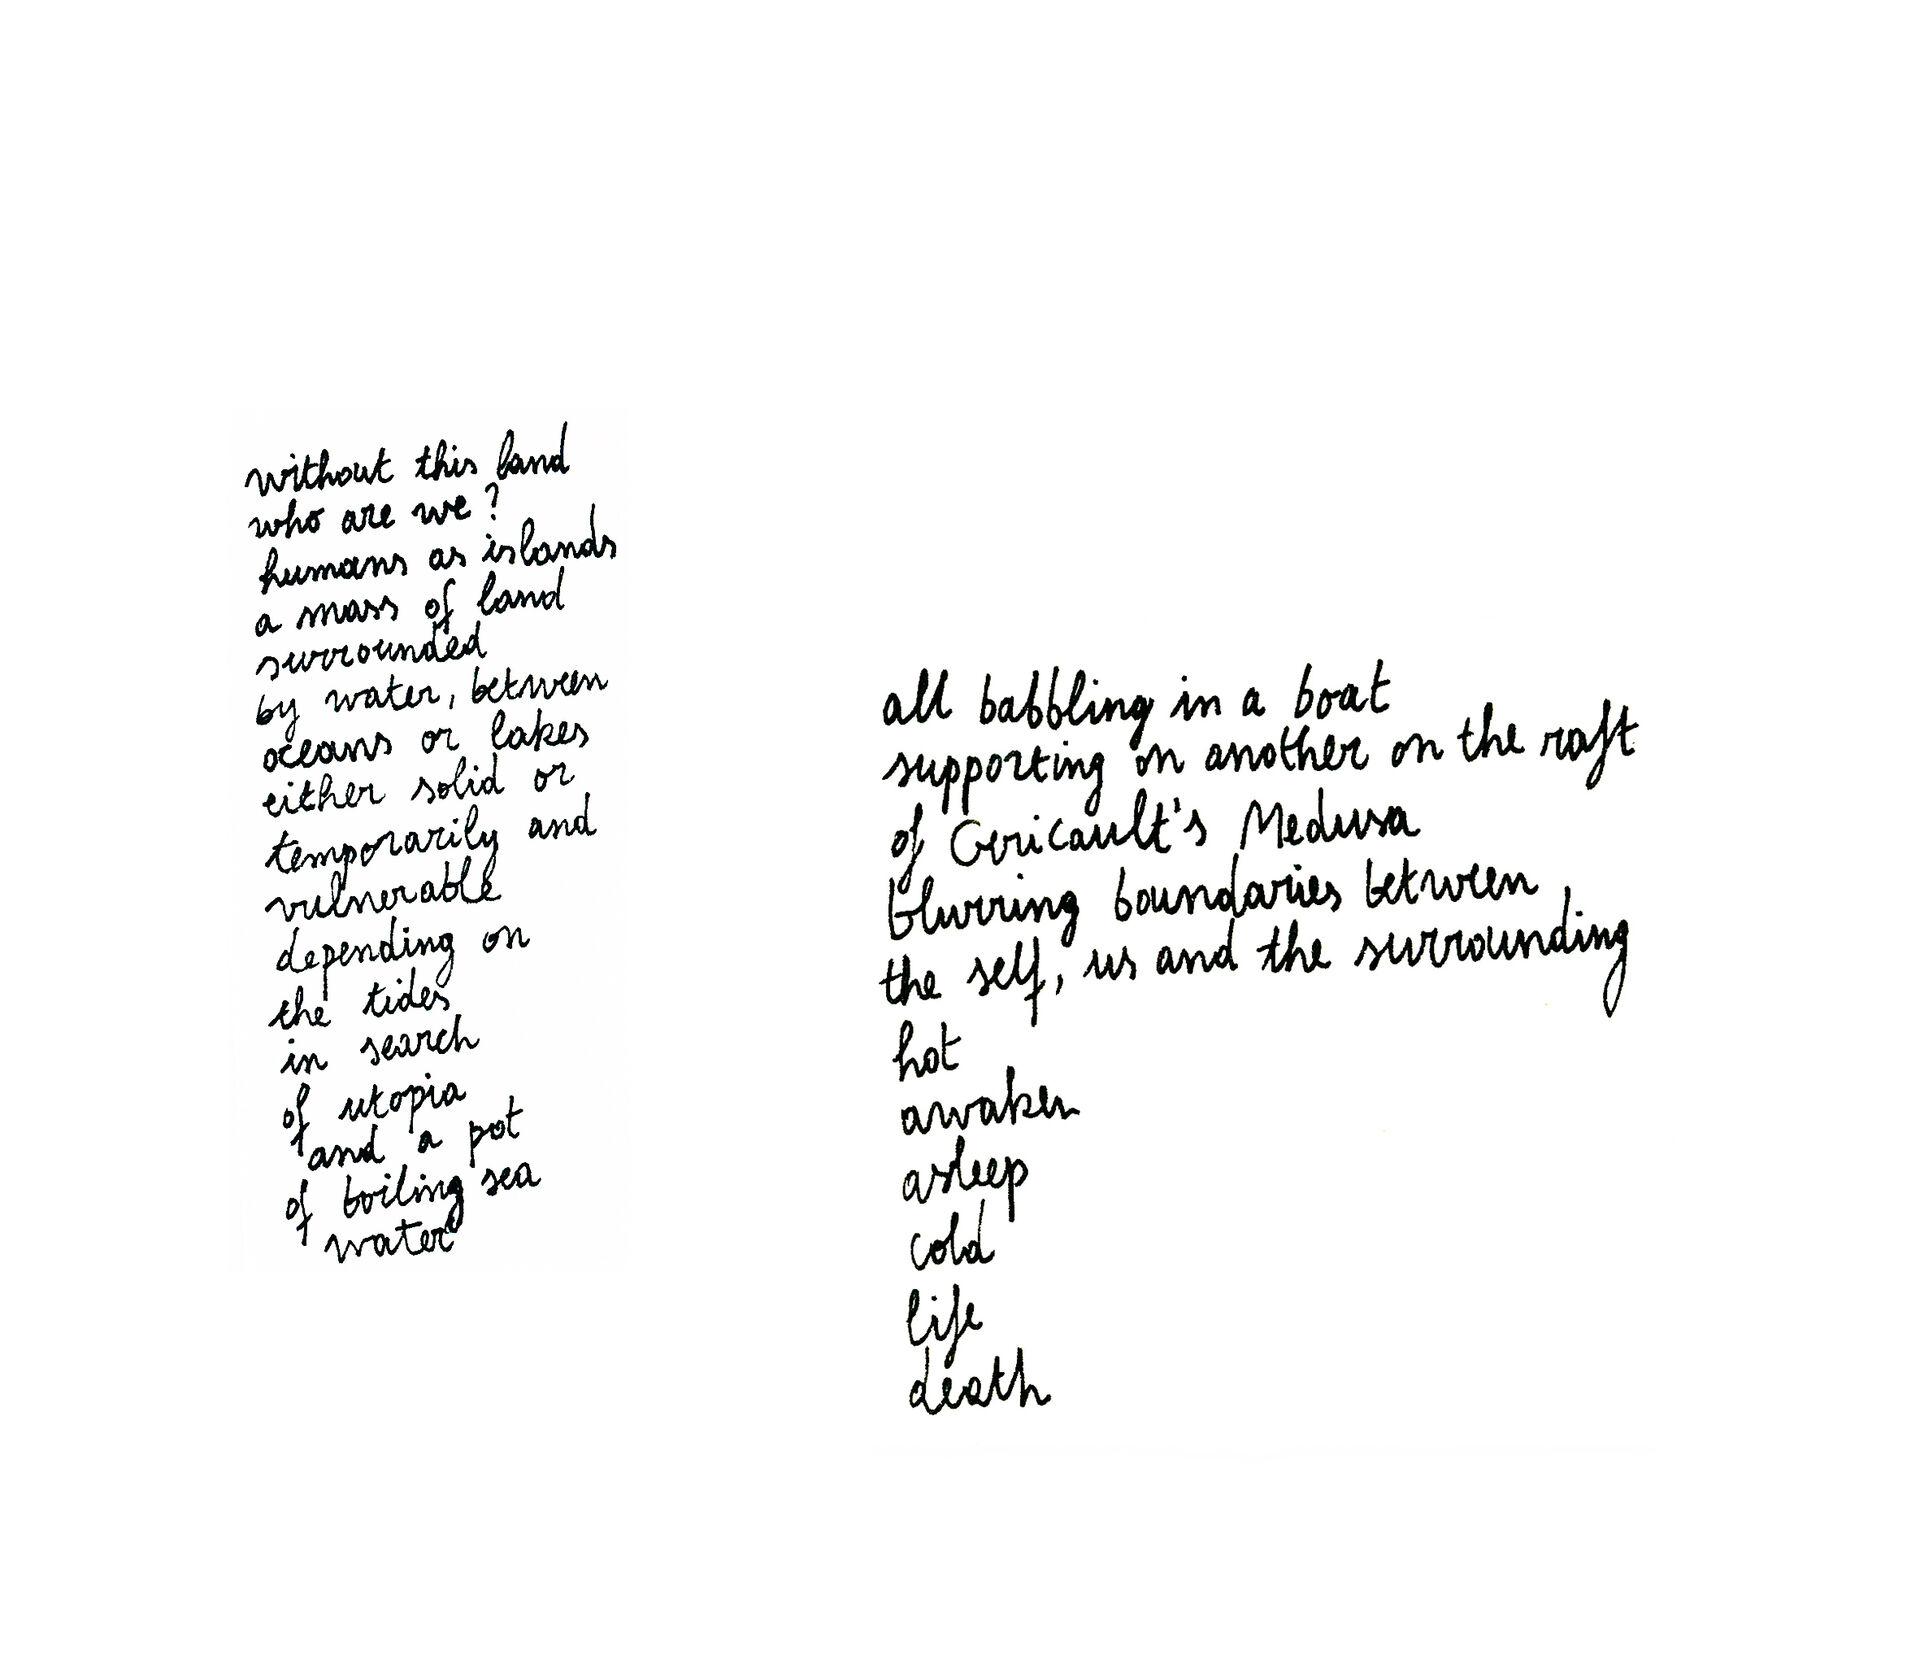 without this land
who are we?
humans as islands
a mass of land
surrounded
by water, between
oceans or lakes
either solid or
temporarily and
vulnerable
depending on
the tides
in search
of utopia
and a pot
of boiling sea
water
all babbling in a boat
supporting on another on the raft
of Gericault's Medusa
blurring boundaries between
the self, us and the surrounding
hot
awaken
asleep
cold
life
death